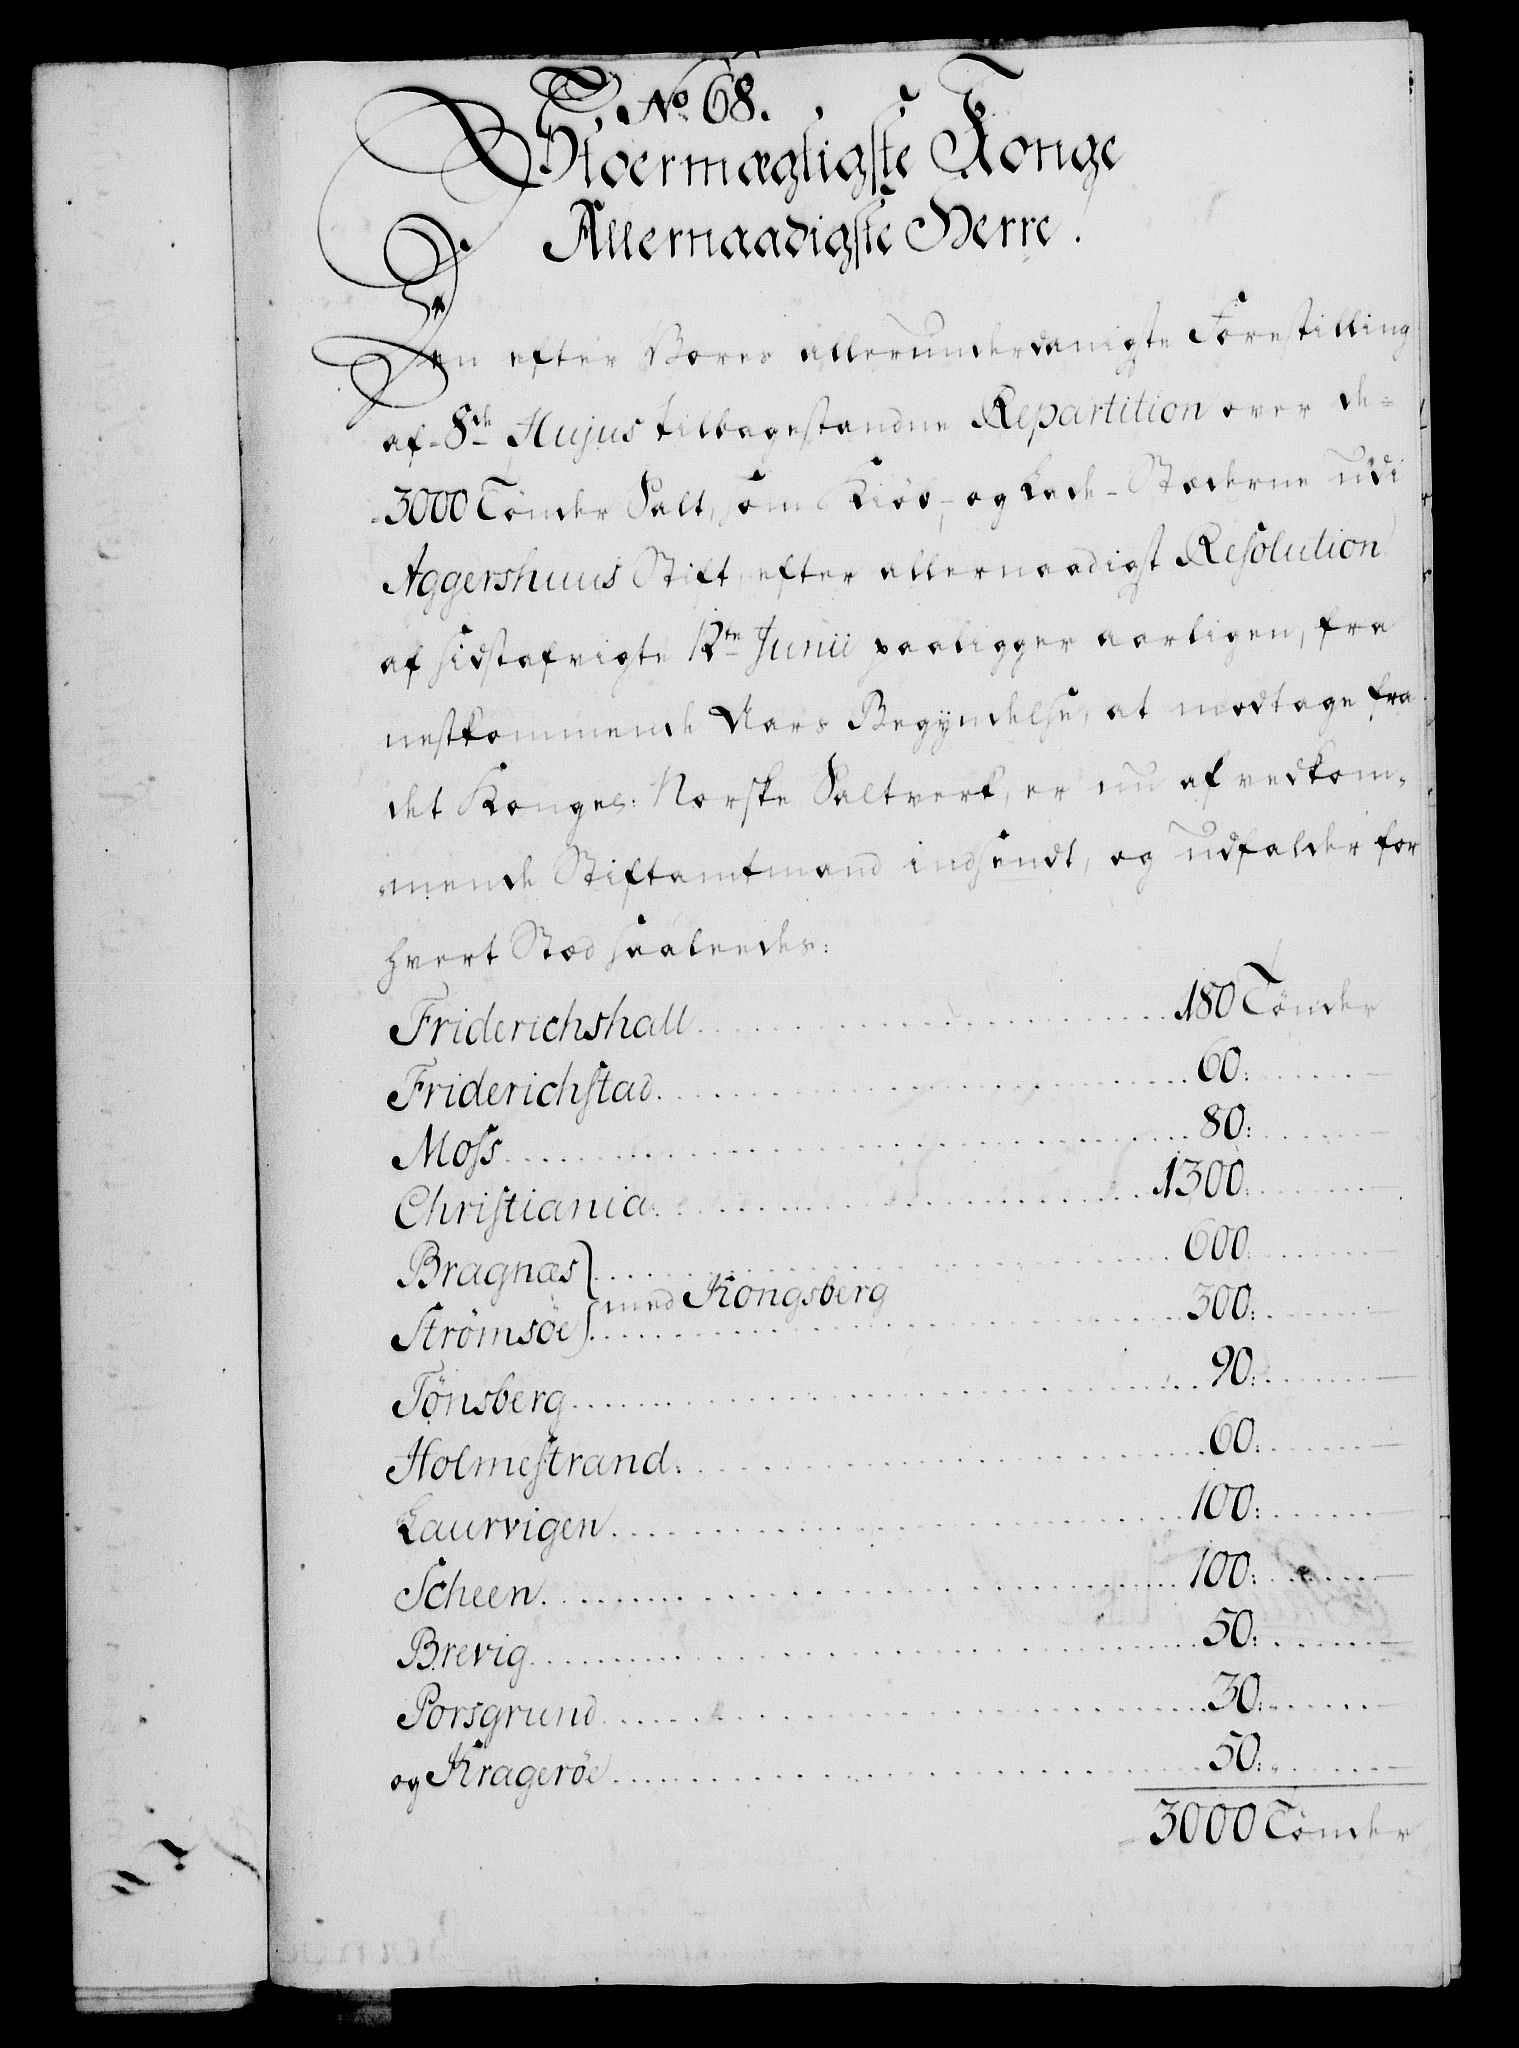 No 68.
Stoermægtigste Konge
Allernaadigste Herre.
Den efter Vores allerunderdanigste Forestilling
af 8de Hujus tilbagestandne Repartition over de
3000 Tønder Salt, som Kiøb- og Lade-Stæderne udi
Aggershuus Stift, efter allernaadigst Resolution
af sidstafvigte 12te Junii paaligger aarligen, fra
nestkommende Aars Begyndelse, at modtage fra
det Kongel: Norske Saltverk, er nu af vedkom-
mende Stiftamtmand indsendt, og udfalder for
hvert Stæd saaledes:
Friderichshall 180 Tønder
Friderichstad 60:
Moss 80:
Christiania 1300:
Bragnæs 600:
med Kongsberg
Strømsøe 300:
Tønsberg 90:
Holmestrand 60:
Laurvigen 100:
Scheen 100:
Brevig 50:
Porsgrund 30:
og Kragerøe 50:
3000 Tønder